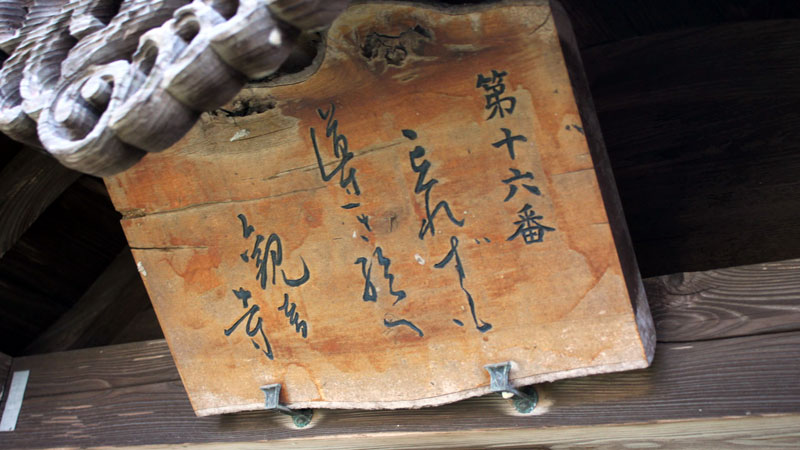 第十六番
忘れずも
導き給へ
観音寺